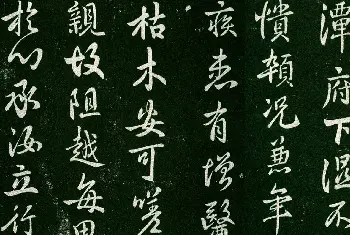 潭府下湿不
憒頓况兼年
疾患有增醫
枯木安可嗟
親故阻越每思
於心承汝立行